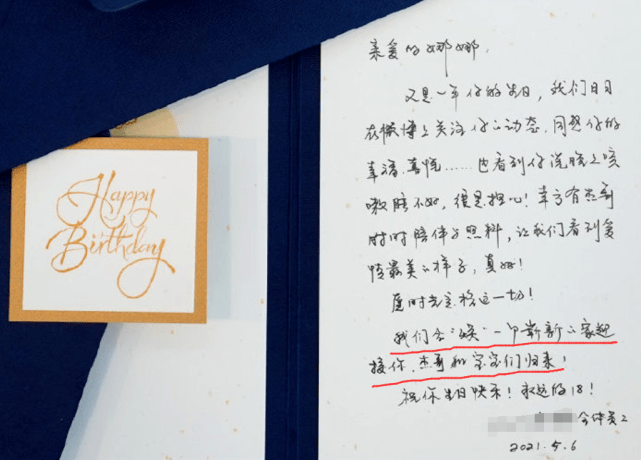 Happy
Birthday
亲爱的娜娜,
又是一年你的生日,我们日日
在微博上关注你的动态.同感你的
幸福.喜悦……也看到你说晚上咳
嗽睡不好,很是担心!幸亏有杰哥
时时陪伴与照料,让我们看到爱
情最美的样子,真好!
愿时光定格这一切!
我们会“焕”一个崭新的家迎
接你.杰哥和宝宝们归来!
祝你生日快乐!永远的18!
全体员工
2021.5.6